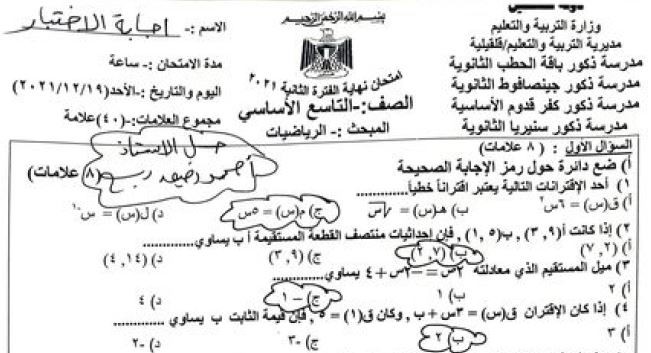 دولة فلسطين
وزارة التربية والتعليم
مديرية التربية والتعليم/قلقيلية
مدرسة ذكور باقة الحطب الثانوية
مدرسة ذكور جينصافوط الثانوية
مدرسة ذكور كفر قدوم الأساسية
مدرسة ذكور سنيريا الثانوية
بسم الله الرحمن الرحيم
امتحان نهاية الفترة الثانية ٢٠٢١
الصف:- التاسع الأساسي
المبحث :- الرياضيات
الاسم :- اجابة الاختبار
مدة الامتحان:- ساعة
اليوم والتاريخ:- الأحد(٢٠٢١/١٢/١٩)
مجموع العلامات:-(٤٠)علامة
حل الاستاذ
السؤال الاول : (٨ علامات)
أ) ضع دائرة حول رمز الإجابة الصحيحة (٨ علامات)
١) أحد الإقترانات التالية يعتبر اقتراناً خطياً.........
أ) ق(س) = ٦س٢ ب) هـ(س) = √س ج) م(س) = ٥س د) ل(س) = س-١
٢) إذا كانت أ(٩, ٣) , ب(٥, ١) , فإن إحداثيات منتصف القطعة المستقيمة أ ب يساوي.........
أ) (٢, ٧) ب) (٧, ٢) ج) (٩, ٣) د) (١٤, ٤)
٣) ميل المستقيم الذي معادلته ٢ص = -٢س + ٤ يساوي.........
أ) ٢ ب) ١ ج) -١ د) ٤
٤) إذا كان الإقتران ق(س) = ٣س + ب , وكان ق(١) = ٥ , فإن قيمة الثابت ب يساوي .........
أ) ٣ ب) ٢ ج) -٣ د) -٢